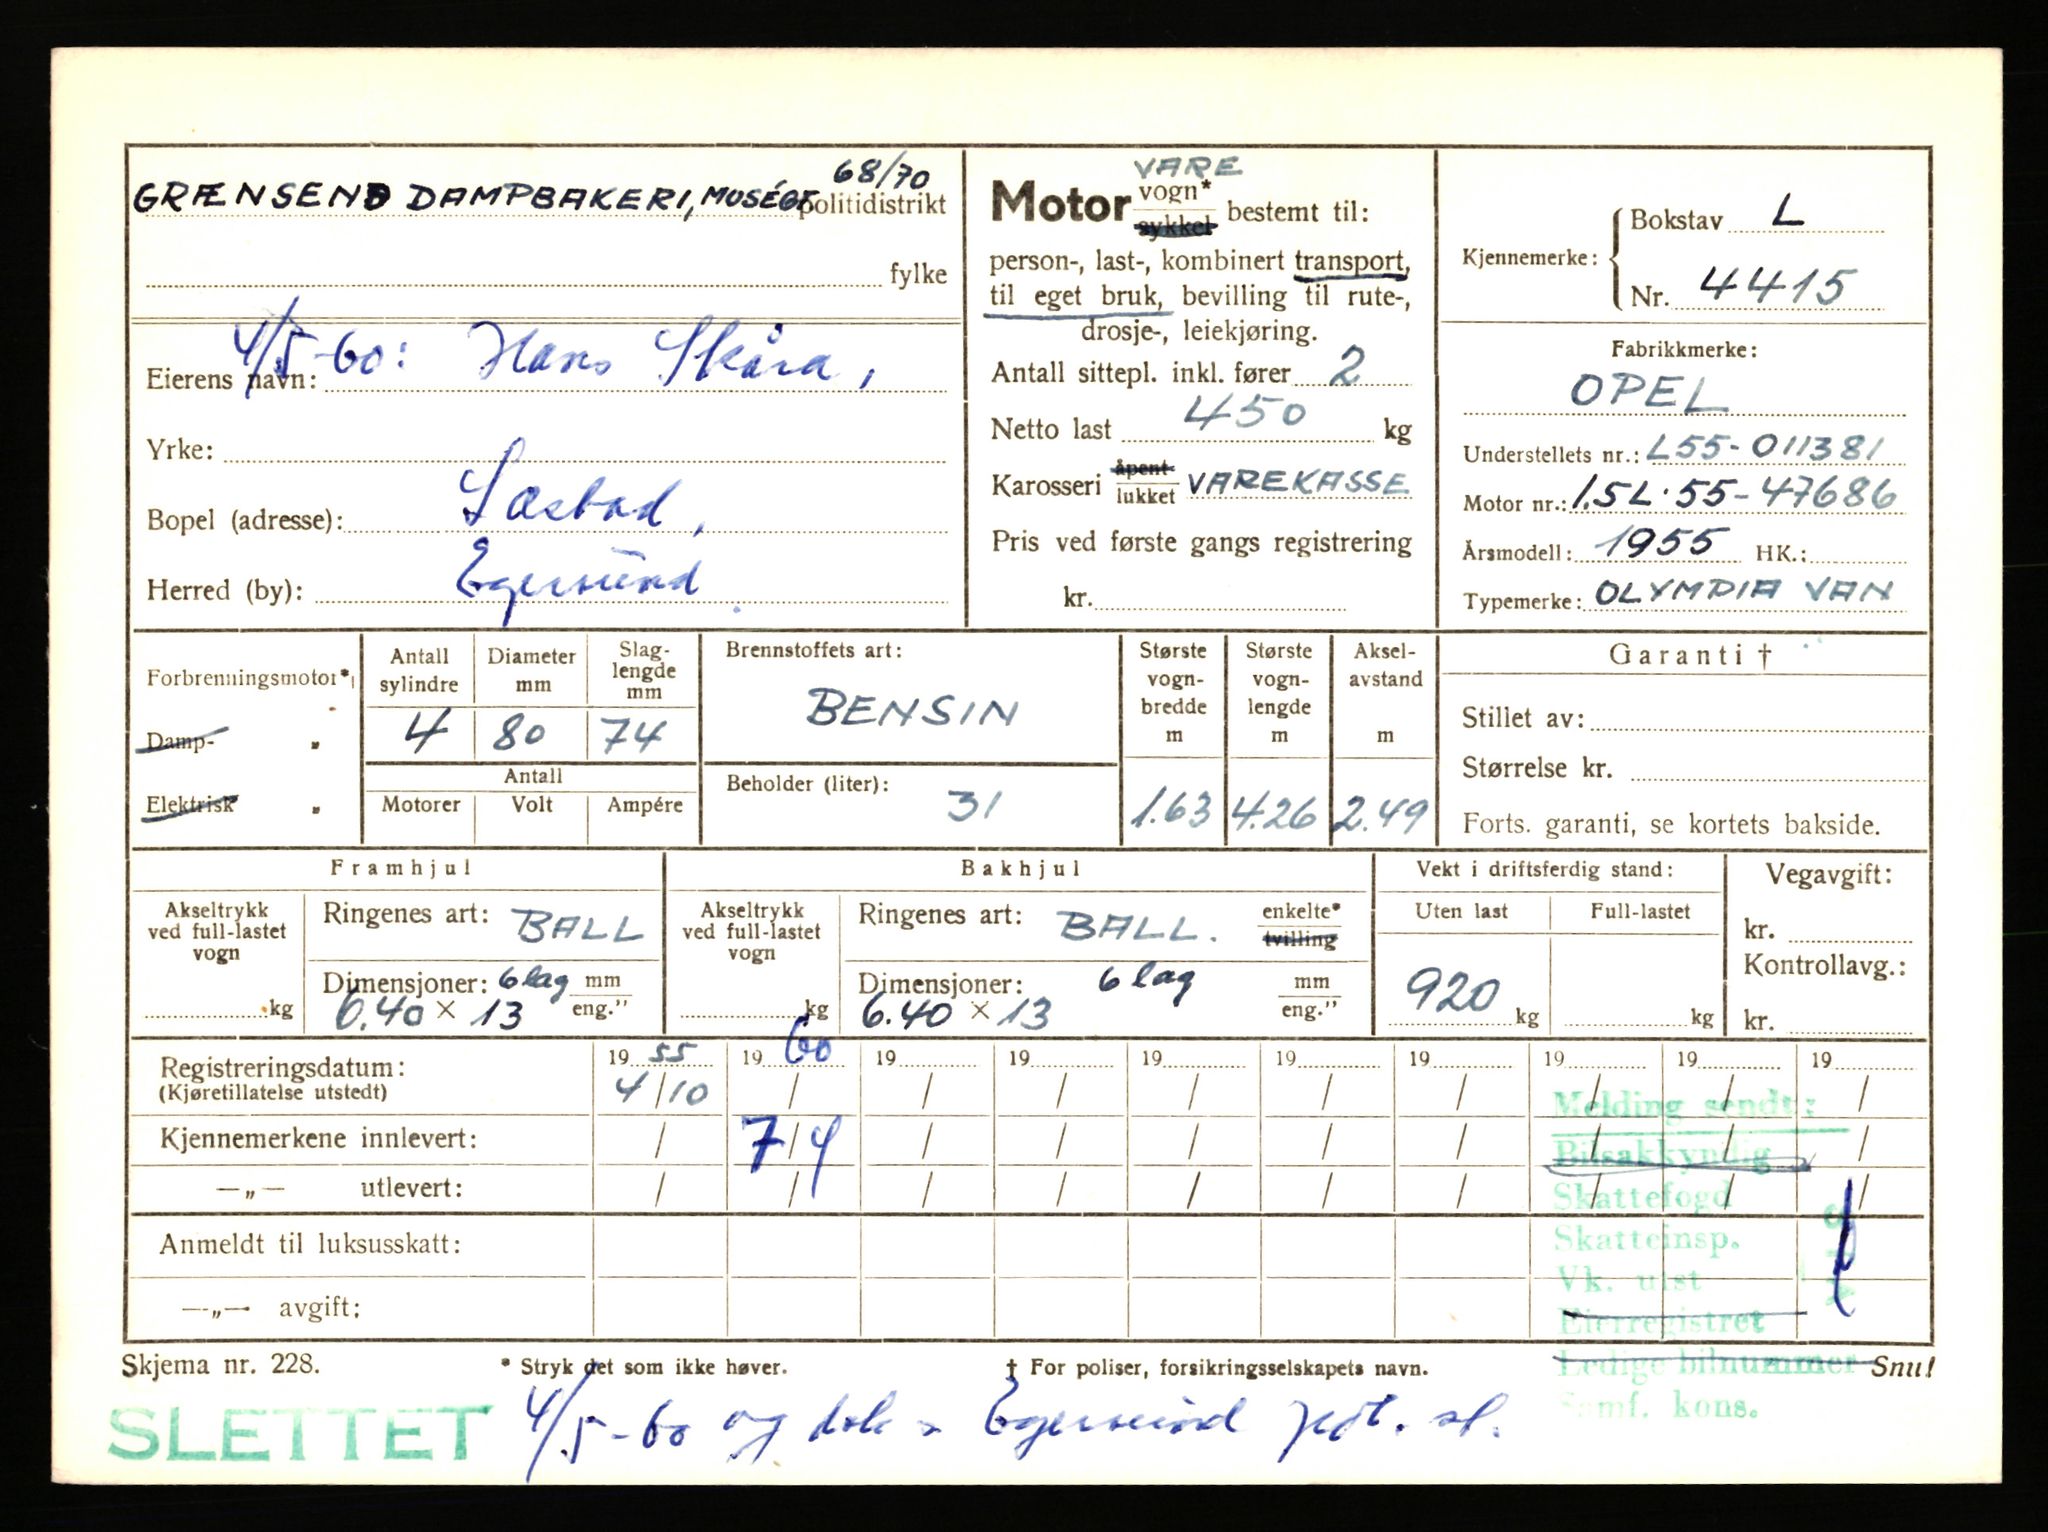 68/70
GRÆNSEND DAMPBAKERI, MUSÉGT politidistrikt
fylke
4/5-60: Hans Skåra,
Eierens navn:
Yrke:
Bopel (adresse): Sæstad,
Herred (by): Egersund.
VARE
Motor vogn* sykkel bestemt til:
person-, last-, kombinert transport,
til eget bruk, bevilling til rute-,
drosje-, leiekjøring.
Antall sittepl. inkl. fører 2
Netto last 450 kg
Karosseri åpent lukket VAREKASSE
Pris ved første gangs registrering
kr.
Kjennemerke: Bokstav L
Nr. 4415
Fabrikkmerke:
OPEL
Understellets nr.: L55-011381
Motor nr.: 1.5L·55-47686
Årsmodell: 1955 HK.:
Typemerke: OLYMPIA VAN
Forbrenningsmotor*
Damp- „
Elektrisk „
Antall sylindre Diameter mm Slag-lengde mm
4 80 74
Antall
Motorer Volt Ampére
Brennstoffets art:
BENSIN
Beholder (liter):
31
Største vogn-bredde m Største vogn-lengde m Aksel-avstand m
1.63 4.26 2.49
Garanti †
Stillet av:
Størrelse kr.
Forts. garanti, se kortets bakside.
Framhjul
Akseltrykk ved full-lastet vogn
kg
Ringenes art: BALL
Dimensjoner: 6 lag mm
6.40 × 13 eng.”
Bakhjul
Akseltrykk ved full-lastet vogn
kg
Ringenes art: BALL. enkelte* tvilling
Dimensjoner: 6 lag mm
6.40 × 13 eng.”
Vekt i driftsferdig stand:
Uten last Full-lastet
920 kg kg
Vegavgift:
kr.
Kontrollavg.:
kr.
Registreringsdatum: 19 55 19 60 19 19 19 19 19 19 19 19
(Kjøretillatelse utstedt) 4/10 / / / / / / / / /
Kjennemerkene innlevert: / 7/4 / / / / / / / /
—„— utlevert: / / / / / / / / / /
Anmeldt til luksusskatt:
—„— avgift:
Melding sendt:
Bilsakkyndig
Skattefogd
Skatteinsp.
Vk. utst
Eierregistret
Ledige bilnummer
Samf. kons.
Skjema nr. 228. * Stryk det som ikke høver. † For poliser, forsikringsselskapets navn. Snu!
SLETTET 4/5-60 og dok Egersund